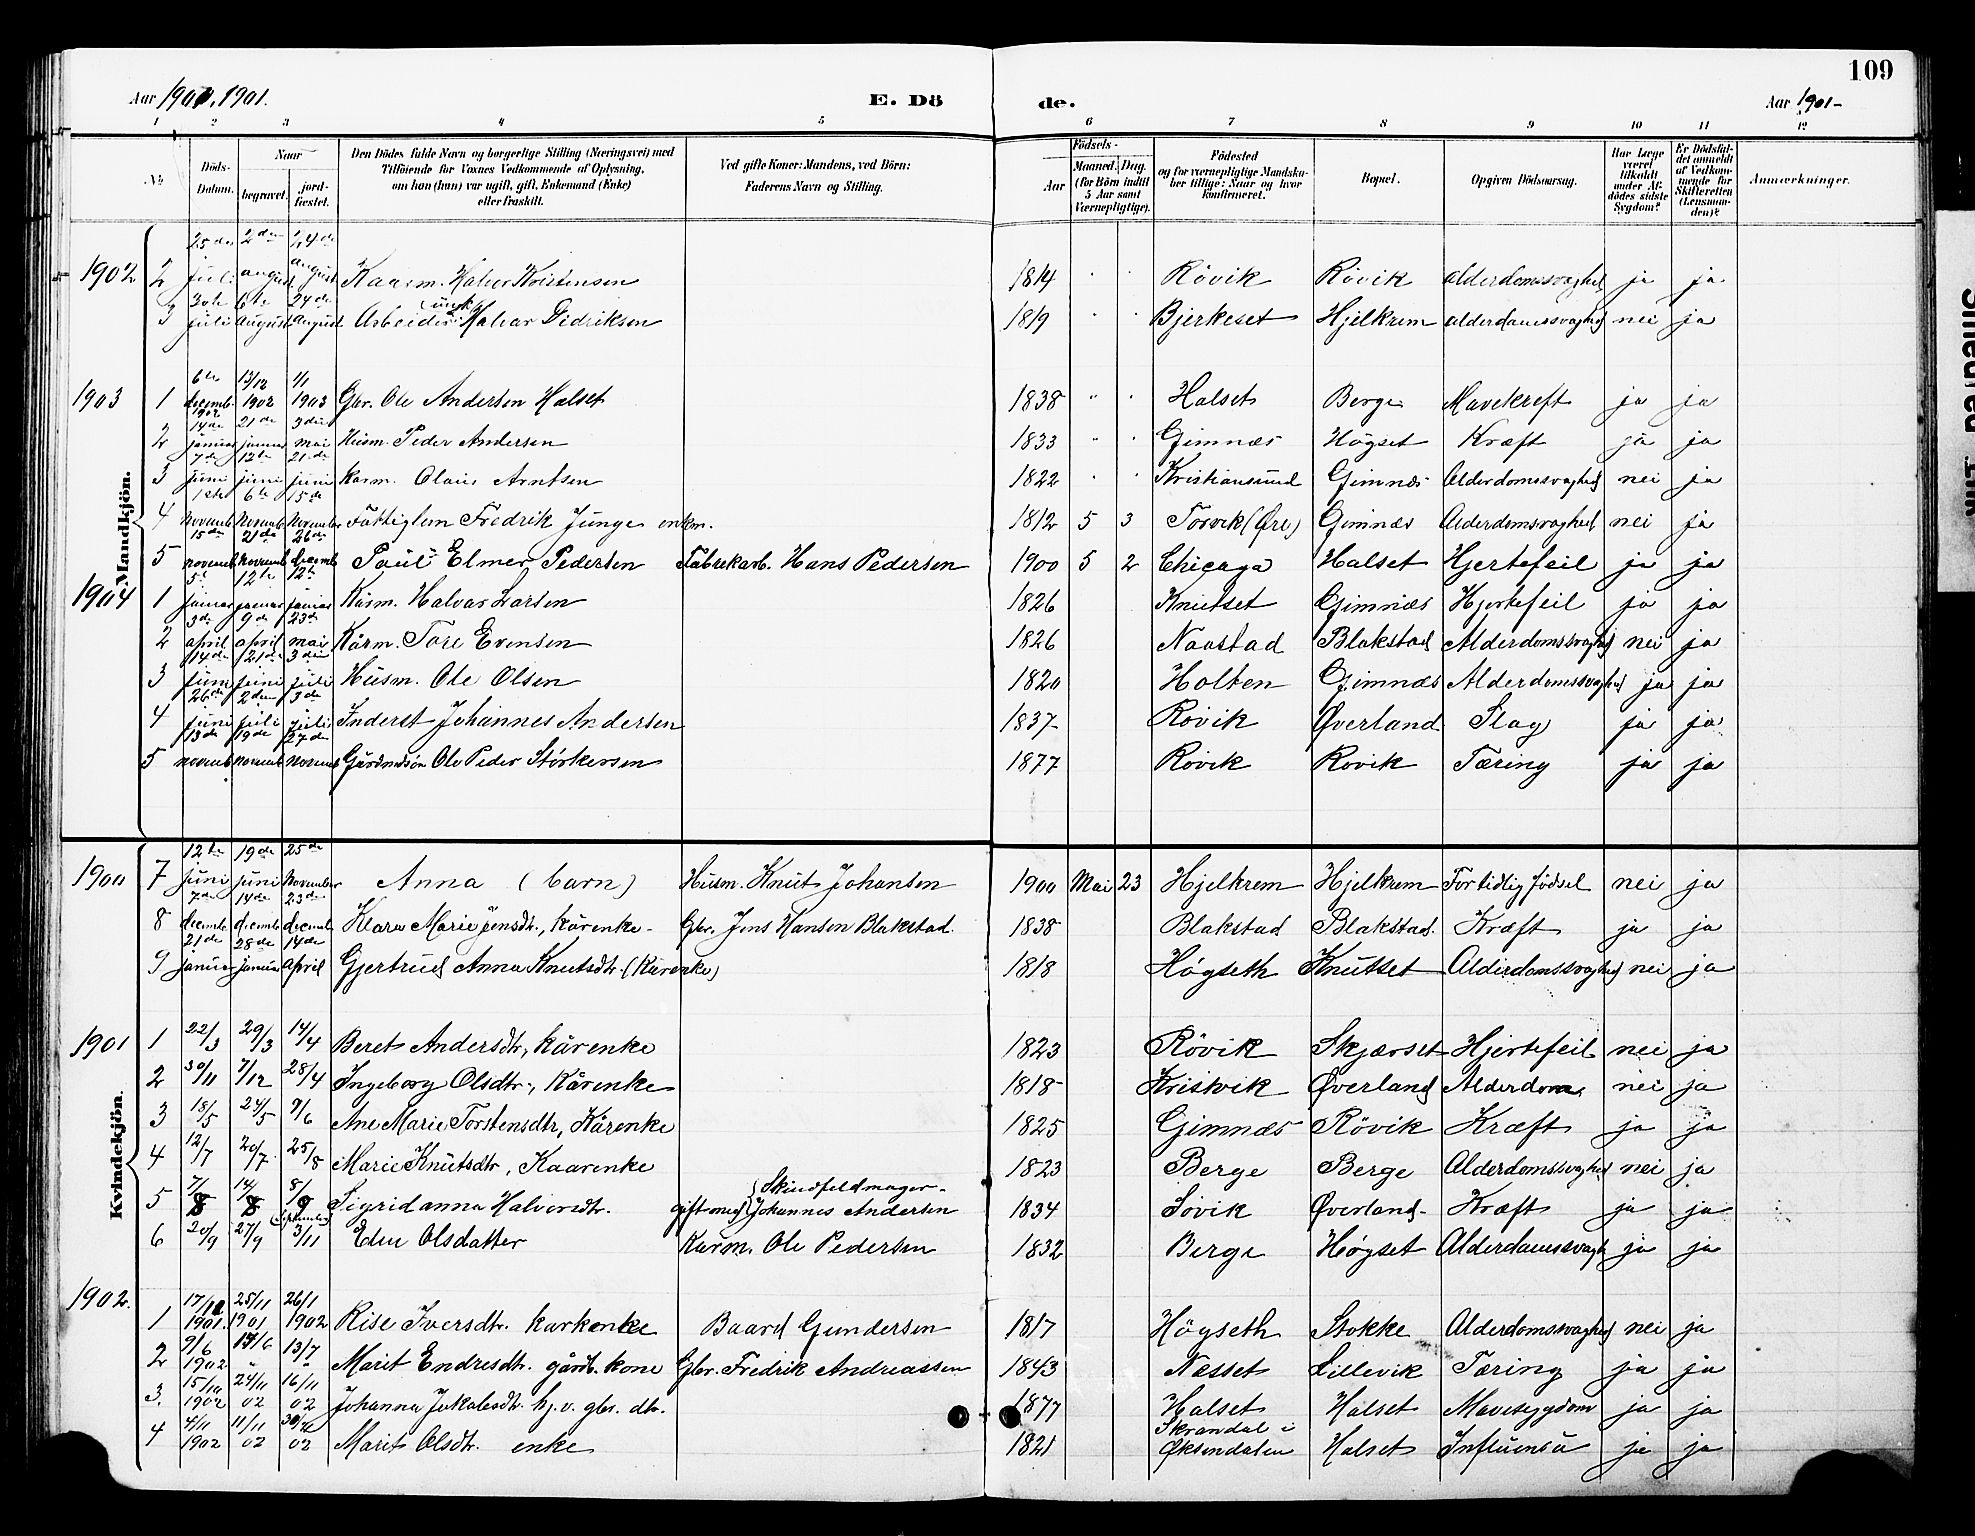 109
Aar 1900, 1901. E. Dö de. Aar 1901-
1 2 3 4 5 6 7 8 9 10 11 12
No Döds-Datum. Naar begravet. jord-fæstet. Den Dödes fulde Navn og borgerlige Stilling (Næringsvei) med Tilföiende for Voxnes Vedkommende af Oplysning, om han (hun) var ugift, gift, Enkemand (Enke) eller fraskilt. Ved gifte Koner: Mandens, ved Börn: Faderens Navn og Stilling. Födsels- Aar Maaned. Dag. (for Börn indtil 5 Aar samt Værnepligtige). Födested og for værnepligtige Mandskaber tillige: Naar og hvor konfirmeret. Bopæl. Opgiven Dödsaarsag. Har Læge været tilkaldt under Afdödes sidste Sygdom? Er Dödsfaldet anmeldt af Vedkommende for Skifteretten (Lensmanden)? Anmærkninger.
Mandkjön.
1902 2 25de juli 2den august 24de august Kaarm. Halvor Kristensen 1814 Rövik Rövik alderdomssvaghed ja ja
3 30te juli 6te August 24de August Arbeider (ungk.) Halvar Didriksen 1819 Bjerkeset Hjelkrem alderdomssvaghed nei ja
1903 1 6te decemb. 1902 13/12 1902 1/1 1903 Gbr. Ole Andersen Halset 1838 Halset Berge Mavekreft ja ja
2 14de januar 21de januar 3die mai Husm. Peder Andersen 1833 Gimnæs Högset Kræft ja ja
3 7de juni 12te juni 21de juni Karm. Olaus Arntsen 1822 Kristiansund Gimnæs Alderdomssvaghed nei ja
4 1ste Novemb. 6te Novemb. 15de November Fattiglem Fredrik Junge enkm. 1812 5 3 Torvik (Øre) Gimnæs Alderdomsvaghed nei ja
5 15de novemb. 21de Novemb. 26de decemb. Paul Elmer Pedersen Fabrekarb. Hans Pedersen 1900 5 2 Chicaga Halset Hjertefeil ja ja
1904 1 5te januar 12te januar 12te januar Kårm. Halvar Larsen 1826 Knutset Gimnæs Hjertefeil ja ja
2 3de april 9de april 23de mai Kårm. Tore Evensen 1826 Naastad Blakstad Alderdomssvaghed nei ja
3 14de juni 21de juni 3die juli Husm. Ole Olsen 1820 Holten Gimnæs Alderdomssvaghed ja ja
4 26de juni 2den juli 3de juli Inderst Johannes Andersen 1837 Rövik Øverland Slag ja ja
5 13de novemb. 19de novemb. 27de novemb. Gårdmdsön Ole Peder Störkersen 1877 Rövik Rövik Tæring ja ja
Kvindekjön.
1900 7 12te juni 19de juni 25de November Anna (barn) Husm. Knut Johansen 1900 Mai 23 Hjelkrem Hjelkrem For tidlig födsel nei ja
8 7de decemb. 14de decemb. 23de decemb. Klara Marie Jensdtr., kårenke- Gbr. Jens Hansen Blakstad. 1838 Blakstad Blakstad. Kræft ja ja
9 21de januar 28de januar 14de April Gjertrud Anna Knutsdtr. (Kårenke) 1818 Högseth Knutset Alderdomssvaghed nei ja
1901 1 22/3 29/3 14/4 Beret Andersdtr, kårenke 1823 Rövik Skjærset Hjertefeil nei ja
2 30/11 7/12 28/4 Ingeborg Olsdtr., Kårenke 1818 Kriskvik Øverland Alderdom nei ja
3 18/5 24/5 9/6 Ane Marie Torstensdtr, Kårenke 1825 Gimnæs Rövik Kræft ja ja
4 12/7 20/7 25/8 Marie Knutsdtr, Kaarenke 1823 Berge Berge Alderdomssvaghed nei ja
5 7/8 14/8 8/9 (september) Sigridanna Halvorsdtr. gift med Skindfeldmager Johannes Andersen 1834 Sövik Øverland Kræft ja ja
6 20/9 27/9 3/11 Eden Olsdatter Karm. Ole Pedersen 1832 Berge Högset Alderdamssvagh ja ja
1902. 1 17/11 1901. 25/11 1901 26/1 1902 Rise Iversdtr. karkenke Baard Gundersen 1817 Högseth Stokke Alderdomssvaghed nei ja
2 9/6 1902 17/6 " 13/7 " Marit Endresdtr. gårdb. kone Gbr. Fredrik Andreassen 1843 Nesset Lillevik Tæring ja ja
3. 15/10 1902 24/11 02 16/11 02 Johanna Jakobsdtr. hj.v. gbr. dtr. 1877 Halset Halset Mavesygdom ja ja
4 4/11 1902 11/11 02 30/11 02 Marit Olsdtr. enke 1821 Skrandal i Øksendalen Halset Influensa ja ja